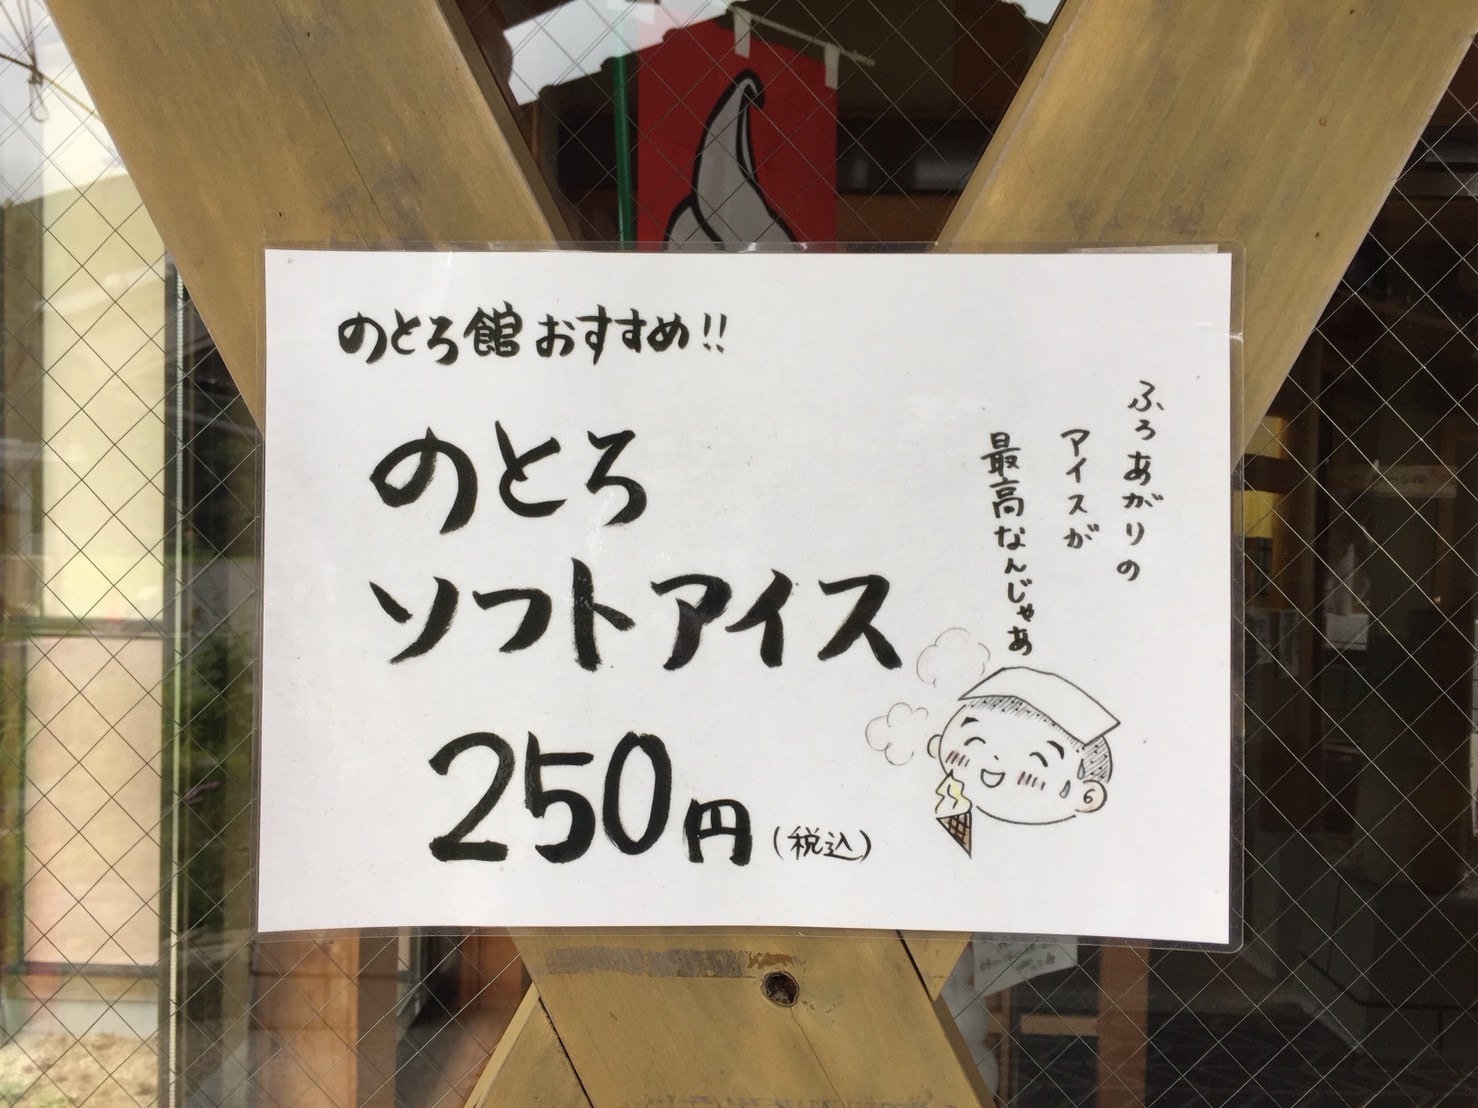 のとろ館おすすめ!!
のとろ
ソフトアイス
250円(税込)
ふろあがりの
アイスが
最高なんじゃあ